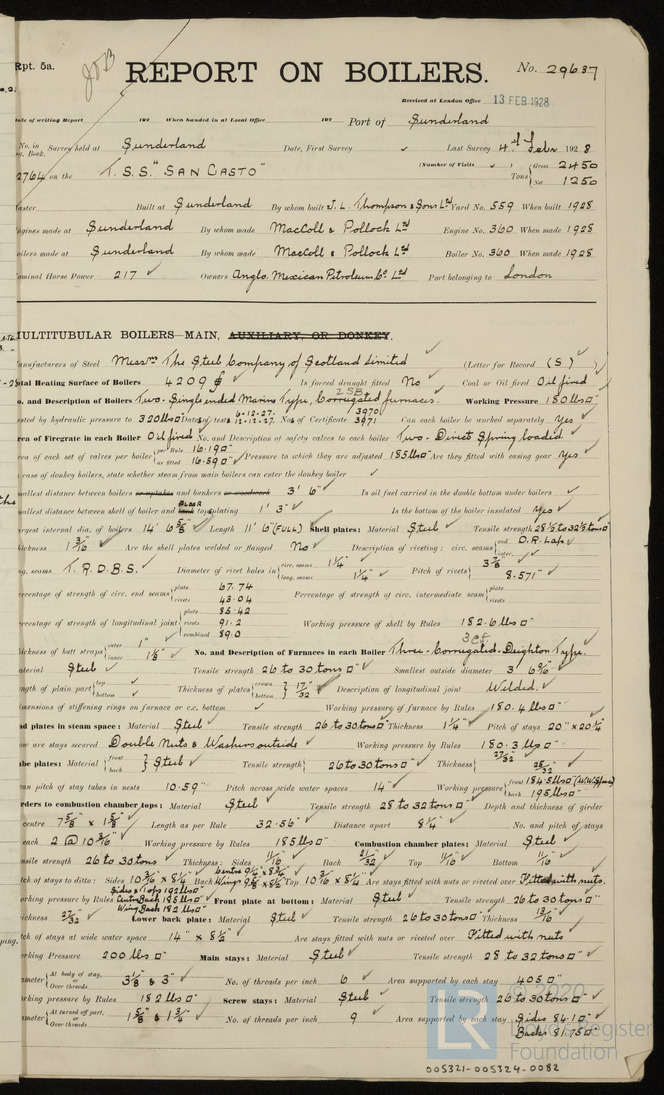 Rpt. 5a.
JDB
REPORT ON BOILERS.
No. 29637
Received at London Office 13 FEB 1928
ate of writing Report 192 When handed in at Local Office 192 Port of Sunderland
No. in Survey held at Sunderland Date, First Survey ✓ Last Survey 4th Febr 1928
g. Book.
(Number of Visits ✓ )
2764 on the T.S.S. "SAN CASTO" Tons { Gross 2450
Net 1250
aster Built at Sunderland By whom built J. L. Thompson & Sons Ltd Yard No. 559 When built 1928
ngines made at Sunderland By whom made MacColl & Pollock Ltd Engine No. 360 When made 1928
oilers made at Sunderland By whom made MacColl & Pollock Ltd Boiler No. 360 When made 1928
ominal Horse Power 217 ✓ Owners Anglo. Mexican Petroleum Co Ltd Port belonging to London
ULTITUBULAR BOILERS—MAIN, AUXILIARY, OR DONKEY.
anufacturers of Steel Messrs The Steel Company of Scotland Limited (Letter for Record (S) )
otal Heating Surface of Boilers 4209 Is forced draught fitted No Coal or Oil fired Oil fired
2 SB
o. and Description of Boilers Two. Single ended Marine Type, Corrugated furnaces. Working Pressure 180 lbs□"
ested by hydraulic pressure to 320 lbs□" Dates of tests 6-12-27. 12-12-27. No. of Certificate 3970 3971 Can each boiler be worked separately Yes
rea of Firegrate in each Boiler Oil fired No. and Description of safety valves to each boiler Two. Direct Spring loaded
rea of each set of valves per boiler { per Rule 16.19□"
as fitted 16.59□" Pressure to which they are adjusted 185 lbs□" Are they fitted with easing gear Yes
case of donkey boilers, state whether steam from main boilers can enter the donkey boiler ✓
mallest distance between boilers or uptakes and bunkers or woodwork 3' 6" Is oil fuel carried in the double bottom under boilers ✓
mallest distance between shell of boiler and FLOOR tank top plating 1' 3" Is the bottom of the boiler insulated Yes
argest internal dia. of boilers 14' 6 5/8" Length 11' 6" (FULL) Shell plates: Material Steel Tensile strength 28½ to 32½ tons□"
hickness 1 3/16" Are the shell plates welded or flanged No Description of riveting: circ. seams { end D.R. Lap
inter.
ng. seams T.R.D.B.S. Diameter of rivet holes in { circ. seams 1¼"
long. seams 1¼" Pitch of rivets { 3 7/8
8.571"
ercentage of strength of circ. end seams { plate 67.74
rivets 43.04 Percentage of strength of circ. intermediate seam { plate
rivets
ercentage of strength of longitudinal joint { plate 85.42
rivets 91.2
combined 89.0 Working pressure of shell by Rules 182.6 lbs□"
3 cf.
hickness of butt straps { outer 1"
inner 1⅛" No. and Description of Furnaces in each Boiler Three. Corrugated. Deighton Type.
aterial Steel Tensile strength 26 to 30 tons□" Smallest outside diameter 3' 6
ngth of plain part { top
bottom Thickness of plates { crown
bottom } 17/32" Description of longitudinal joint Welded.
imensions of stiffening rings on furnace or c.c. bottom ✓ Working pressure of furnace by Rules 180.4 lbs□"
nd plates in steam space: Material Steel Tensile strength 26 to 30 tons□" Thickness 1¼" Pitch of stays 20" x 20¼"
ow are stays secured Double Nuts & Washers outside Working pressure by Rules 180.3 lbs□"
ube plates: Material { front
back } Steel Tensile strength { 26 to 30 tons□" Thickness { 27/32"
an pitch of stay tubes in nests 10.59" Pitch across wide water spaces 14" Working pressure { front 184.5 lbs□" (W.W. Space)
back 195 lbs□"
rders to combustion chamber tops: Material Steel Tensile strength 28 to 32 tons□" Depth and thickness of girder
centre 7 5/8" x 1 5/8" Length as per Rule 32.56" Distance apart 8¼" No. and pitch of stays
each 2 @ 10 3/16" Working pressure by Rules 185 lbs□" Combustion chamber plates: Material Steel
ensile strength 26 to 30 tons Thickness: Sides 11/16" Back 21/32" Top 11/16" Bottom 11/16"
tch of stays to ditto: Sides 10 3/16" x 8¼" Back Top 10 3/16" x 8¼" Are stays fitted with nuts or riveted over Fitted with nuts.
Sides & Tops 192 lbs□"
orking pressure by Rules Centre Back 195 lbs□" Front plate at bottom: Material Steel Tensile strength 26 to 30 tons□"
Wing Back 182 lbs□"
ickness 27/32" Lower back plate: Material Steel Tensile strength 26 to 30 tons□" Thickness 13/16"
tch of stays at wide water space 14" x 8½" Are stays fitted with nuts or riveted over Fitted with nuts
rking Pressure 200 lbs□" Main stays: Material Steel Tensile strength 28 to 32 tons□"
meter { At body of stay,
or
Over threads 3⅛" & 3" No. of threads per inch 6 Area supported by each stay 405□"
rking pressure by Rules 182 lbs□" Screw stays: Material Steel Tensile strength 26 to 30 tons□"
meter { At turned off part,
or
Over threads 1 5/8" & 1¾" No. of threads per inch 9 Area supported by each stay Sides 84.1□"
Backs 81.75□"
© 2020
LR
Lloyd's Register
Foundation
005321-005324-0082